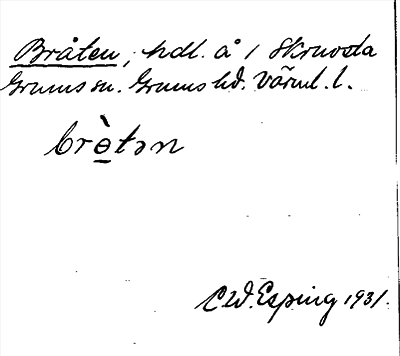 Bråten, hdl. å 1 Skruvsta
Grums sn. Grums hd. Värml. l.
brè̱tən
C.W. Esping 1931.